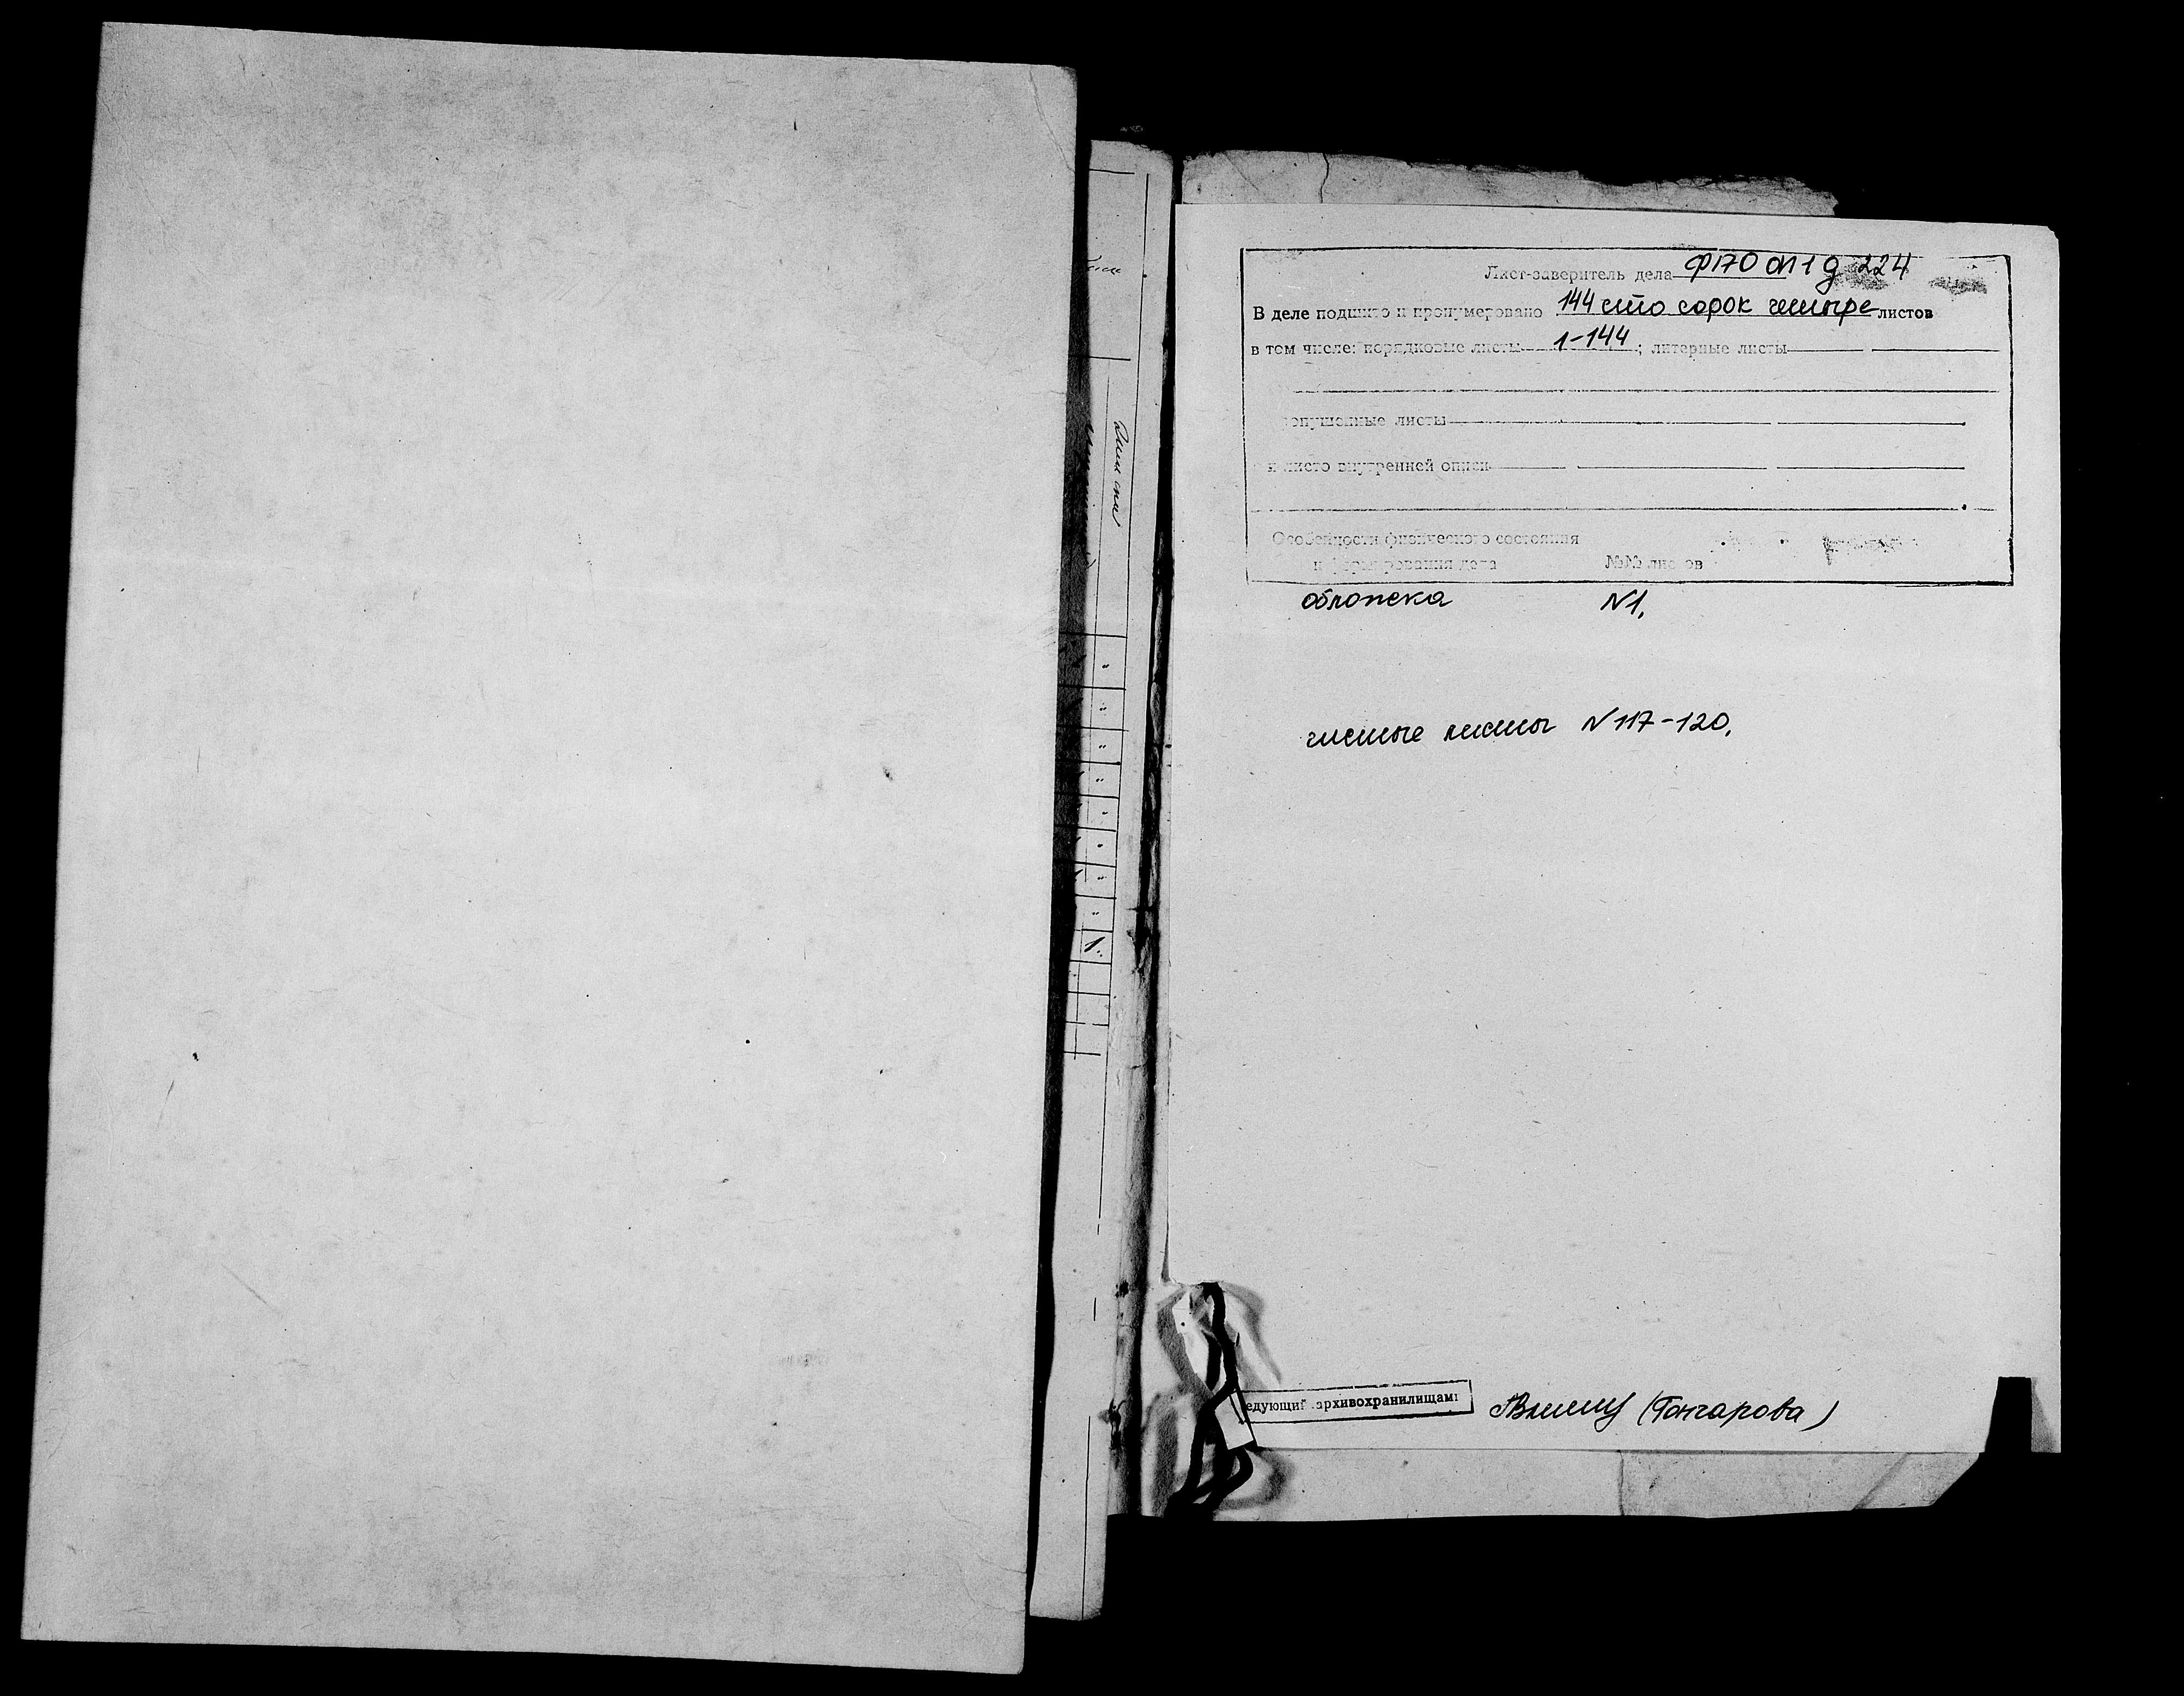 Лист-заверитель дела Ф170 оп1 д 224
В деле подшито и пронумеровано 144 сто сорок четыре листов
в том числе: порядковые листы 1-144; литерные листы
опущенные листы
листо внутренней описи
Особенности физического состояния
и формирования дела №№ листов
обложка N1.
чистые листы N117-120.
едующий архивохранилищам
(Гончарова)